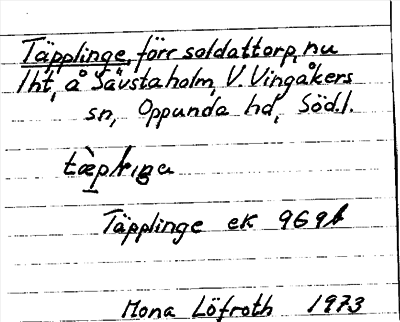 Täpplinge, förr soldattorp, nu
lht, å Sävstaholm, V. Vingåkers
sn, Oppunda hd, Söd.l.
Täpplinge ek 969
Mona Löfroth 1973